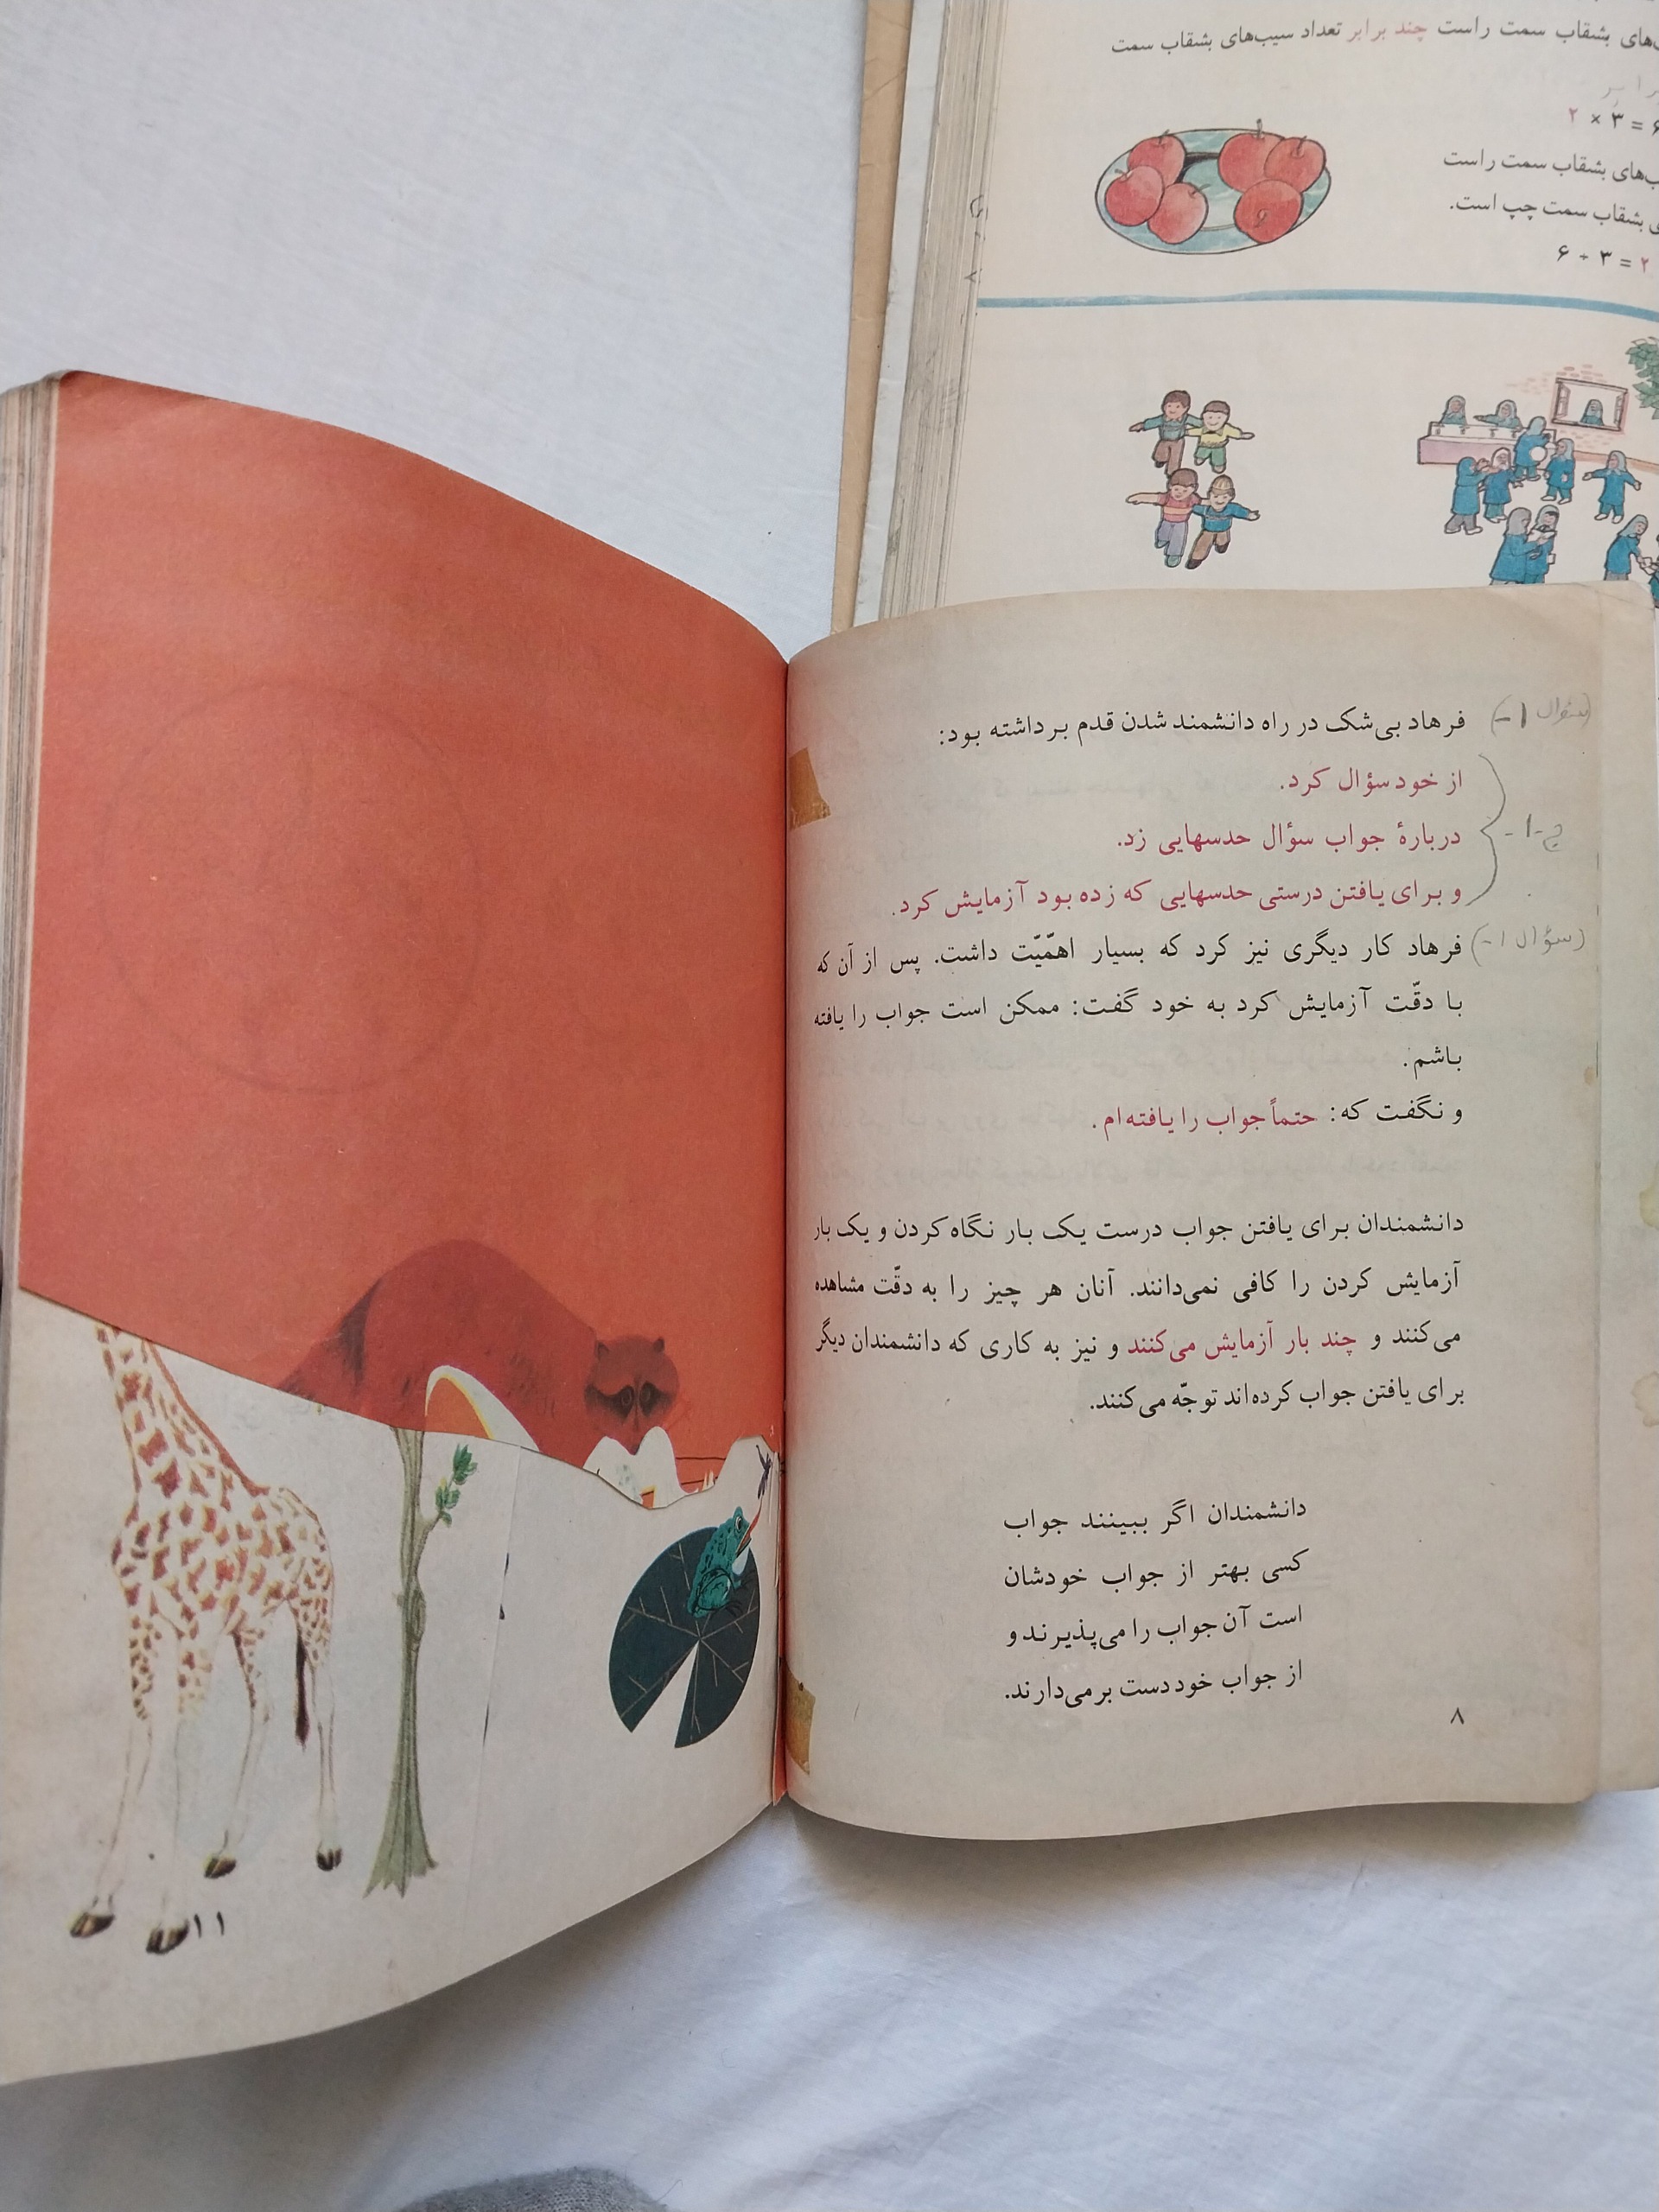 بشقاب سمت راست چند برابر تعداد سیب‌های بشقاب سمت
۲ × ۳ =
بشقاب سمت راست
بشقاب سمت چپ است.
۶ ÷ ۳ = ۲
(سؤال ۱-)
فرهاد بی‌شک در راه دانشمند شدن قدم برداشته بود:
از خود سؤال کرد.
ج-۱-
دربارهٔ جواب سؤال حدسهایی زد.
و برای یافتن درستی حدسهایی که زده بود آزمایش کرد.
(سؤال ۱-)
فرهاد کار دیگری نیز کرد که بسیار اهمّیّت داشت. پس از آن که
با دقّت آزمایش کرد به خود گفت: ممکن است جواب را یافته
باشم.
و نگفت که: حتماً جواب را یافته‌ام.
دانشمندان برای یافتن جواب درست یک بار نگاه کردن و یک بار
آزمایش کردن را کافی نمی‌دانند. آنان هر چیز را به دقّت مشاهده
می‌کنند و چند بار آزمایش می‌کنند و نیز به کاری که دانشمندان دیگر
برای یافتن جواب کرده‌اند توجّه می‌کنند.
دانشمندان اگر ببینند جواب
کسی بهتر از جواب خودشان
است آن جواب را می‌پذیرند و
از جواب خود دست برمی‌دارند.
۸
۱۱